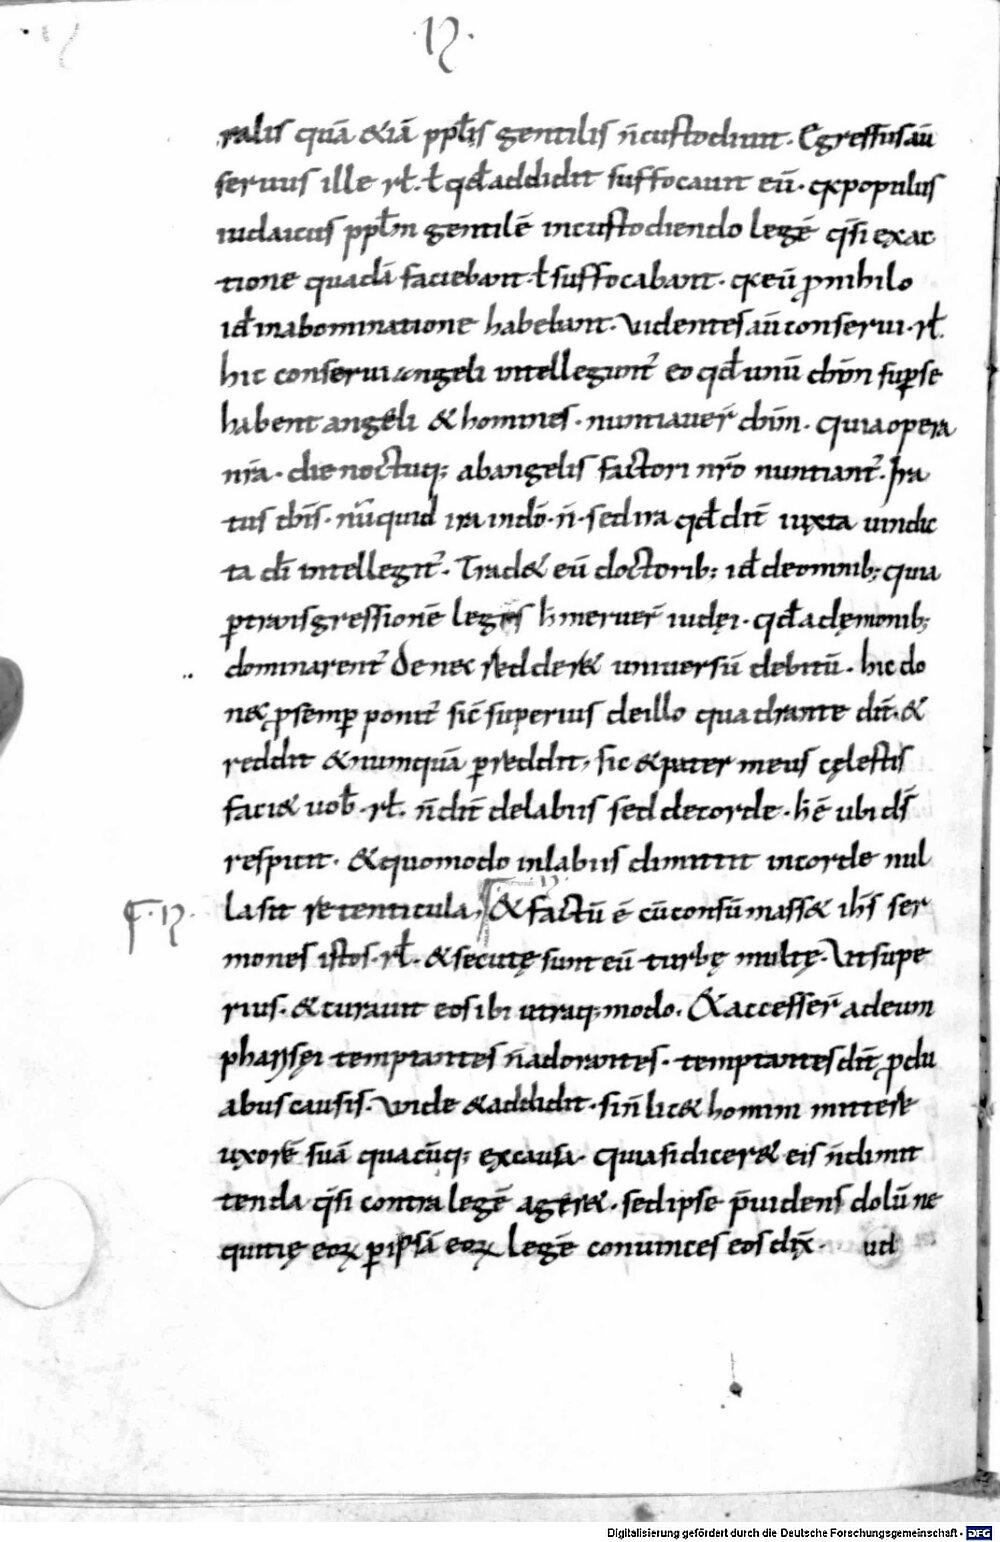 ·19·
ralis quā &iā ppl̄is gentilis n̄ custodiunt · Egressus aū
seruus ille rł. ł qđ addidit suffocauit eū · q̄ populus
iudaicus ppl̄m gentilē in custodiendo legē q̄si exac
tione quadā faciebant · ł suffocabant · q̄ eū ꝓ nihilo
iđ in abominatione habebant · Videntes aū conserui · rł.
hic conserui angeli intellegunt᷑ eo qđ unū dn̄m sup se
habent angeli & homines · nuntiauer̄ dn̄m · quia opera
nr̄a · die noctuq; ab angelis factori nr̄o nuntiant᷑ · Ira
tus dn̄s · nūquid ira in dō · n̄ · sed ira qđ dīt iuxta uindic
ta dī intellegit᷑ · Trad& eū doctorib; iđ demonib; quia
ꝑ transgressionē legis h̄ meruer̄ iudęi · qđ a dęmonib;
dominarent᷑ Donec redder& uniuersū debitū · hic do
nec ꝓ semꝑ ponit᷑ sic̄ superius de illo quadrante dīt · &
reddit & numquā ꝑreddit, sic & pater meus cęlestis
faci& uob̄ · rł. n̄ dīt de labiis sed de corde · h̄ ē ubi dś
respicit · & quomodo in labiis dimittit in corde nul
la sit retenticula, & factū ē cū consūmass& ih̄s ser
·19·
mones istos · rł · & secutę sunt eū turbę multę · Vt supe
rius · & curauit eos ibi utraq; modo · & accesser̄ ad eum
pharisęi temptantes n̄ adorantes · temptantes dīt ꝓ du
abus causis · unde & addidit · si n̄ lic& homini mittere
uxorē suā quacūq; ex causa · quia si dicer& eis n̄ dimit
tenda q̄si contra legē ager& · sed ipse p̄uidens dolū ne
quitię eoꝝ ꝑ ipsā eoꝝ legē conuinces eos dix̄ · ud
Digitalisierung gefördert durch die Deutsche Forschungsgemeinschaft - DFG